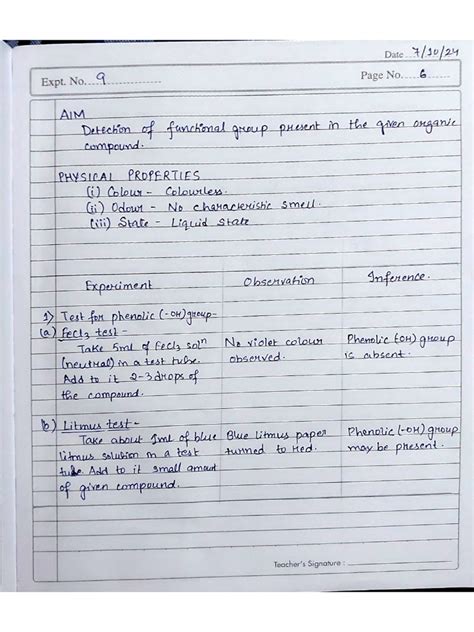 Date 7/10/24
Expt. No. 9
Page No. 6
AIM
Detection of functional group present in the given organic
compound.
PHYSICAL PROPERTIES
(i) Colour - Colourless.
(ii) Odour - No characteristic smell.
(iii) State - Liquid State
Experiment
Observation
Inference.
1) Test for phenolic (-OH)group-
(a) FeCl3 test -
Take 5ml of FeCl3 solⁿ
(neutral) in a test tube.
Add to it 2-3 drops of
the compound.
No violet colour
observed.
Phenolic (-OH) group
is absent.
b) Litmus test -
Take about 1ml of blue
litmus solution in a test
tube. Add to it small amount
of given compound.
Blue litmus paper
turned to red.
Phenolic (-OH) group
may be present.
Teacher's Signature :